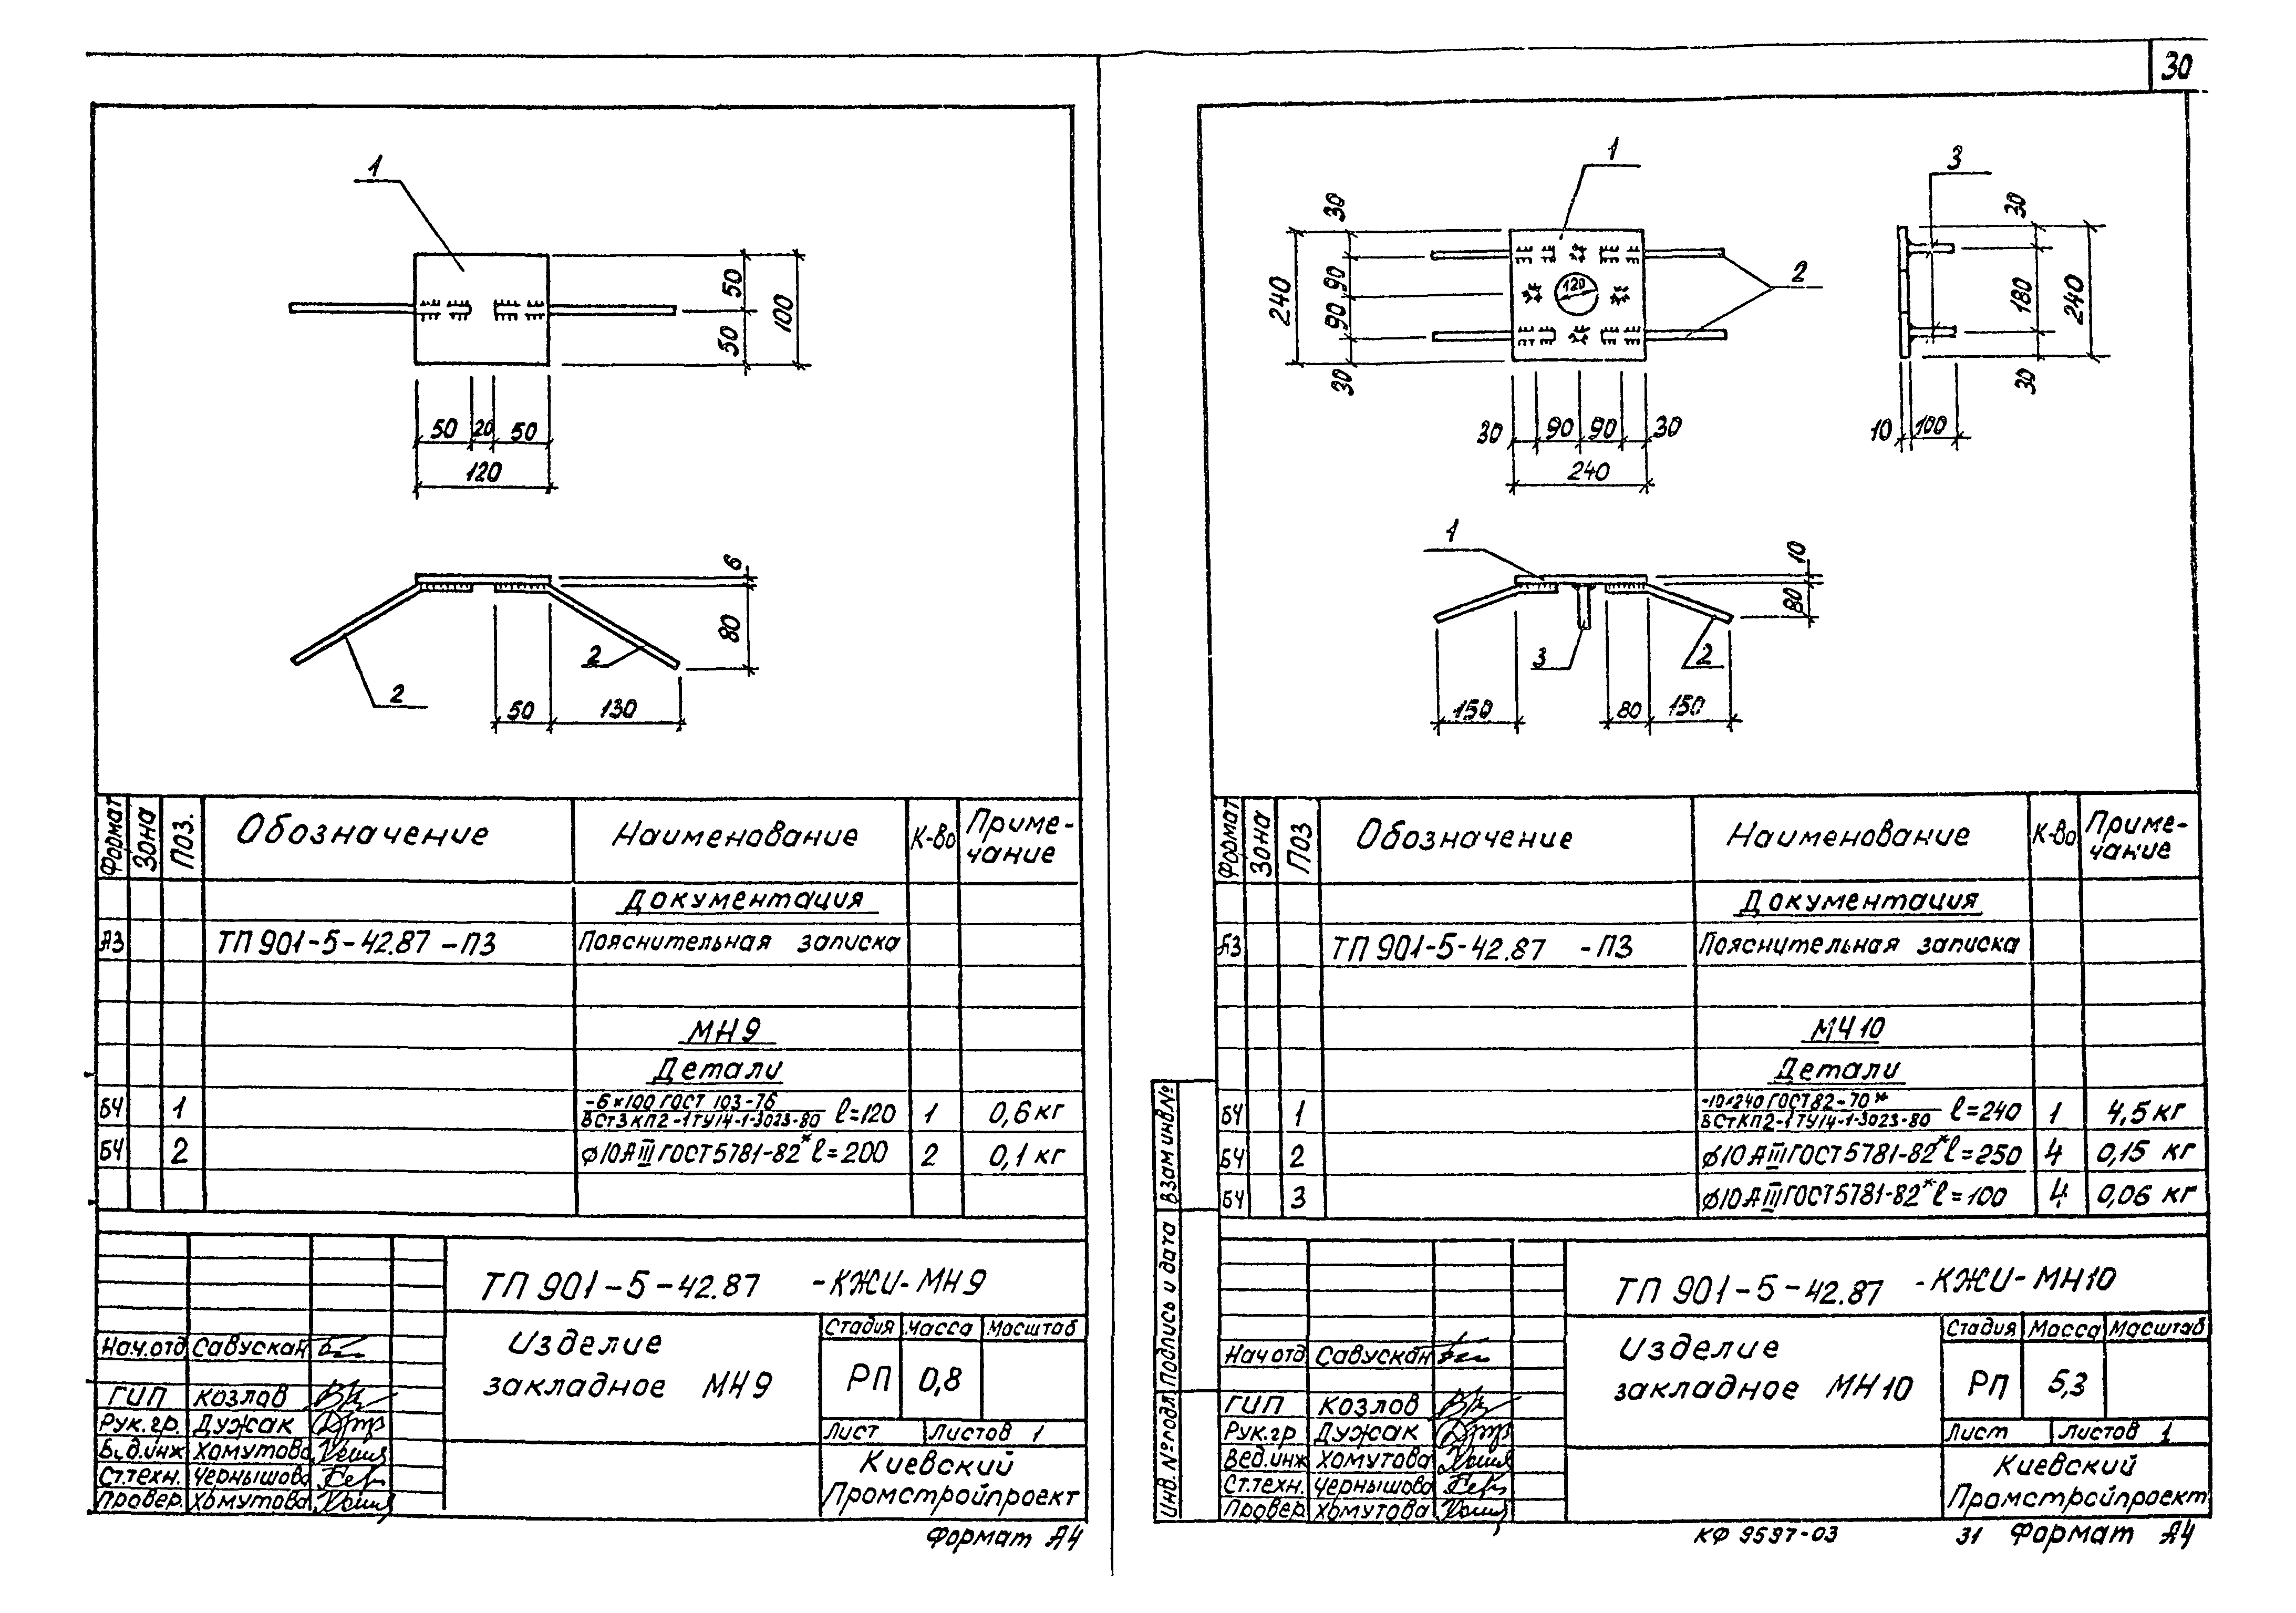 30
1
50
50
100
50 20 50
120
6
80
2
2
50 130
Формат Зона Поз. Обозначение Наименование К-во Приме-
чание
Документация
А3 ТП 901-5-42.87 -ПЗ Пояснительная записка
МН 9
Детали
БЧ 1 -6×100 ГОСТ 103-76
ВСт3КП2-1ТУ14-1-3023-80 ℓ=120 1 0,6 кг
БЧ 2 ϕ10АIII ГОСТ 5781-82* ℓ=200 2 0,1 кг
ТП 901-5-42.87 -КЖИ-МН 9
Изделие
закладное МН 9
Стадия Масса Масштаб
РП 0,8
Лист Листов 1
Киевский
Промстройпроект
Нач.отд Савускан
ГИП Козлов
Рук.гр. Дужак
Вед.инж Хомутова
Ст.техн. Чернышова
Провер. Хомутова
Формат А4
1
3
2
30
90
90
30
240
120
30 90 90 30
240
30
180
30
240
10 100
1
10
80
3
2
150 80 150
Формат Зона Поз Обозначение Наименование К-во Приме-
чание
Документация
А3 ТП 901-5-42.87 -ПЗ Пояснительная записка
МЧ 10
Детали
БЧ 1 -10×240 ГОСТ 82-70*
ВСтКП2-1ТУ14-1-3023-80 ℓ=240 1 4,5 кг
БЧ 2 ϕ10АIII ГОСТ 5781-82* ℓ=250 4 0,15 кг
БЧ 3 ϕ10АIII ГОСТ 5781-82* ℓ=100 4 0,06 кг
Взам инв.№
Подпись и дата
Инв.№подл.
ТП 901-5-42.87 -КЖИ-МН10
Изделие
закладное МН 10
Стадия Масса Масштаб
РП 5,3
Лист Листов 1
Киевский
Промстройпроект
Нач отд Савускан
ГИП Козлов
Рук.гр Дужак
Вед.инж Хомутова
Ст.техн. Чернышова
Провер Хомутова
КФ 9597-03 31 Формат А4